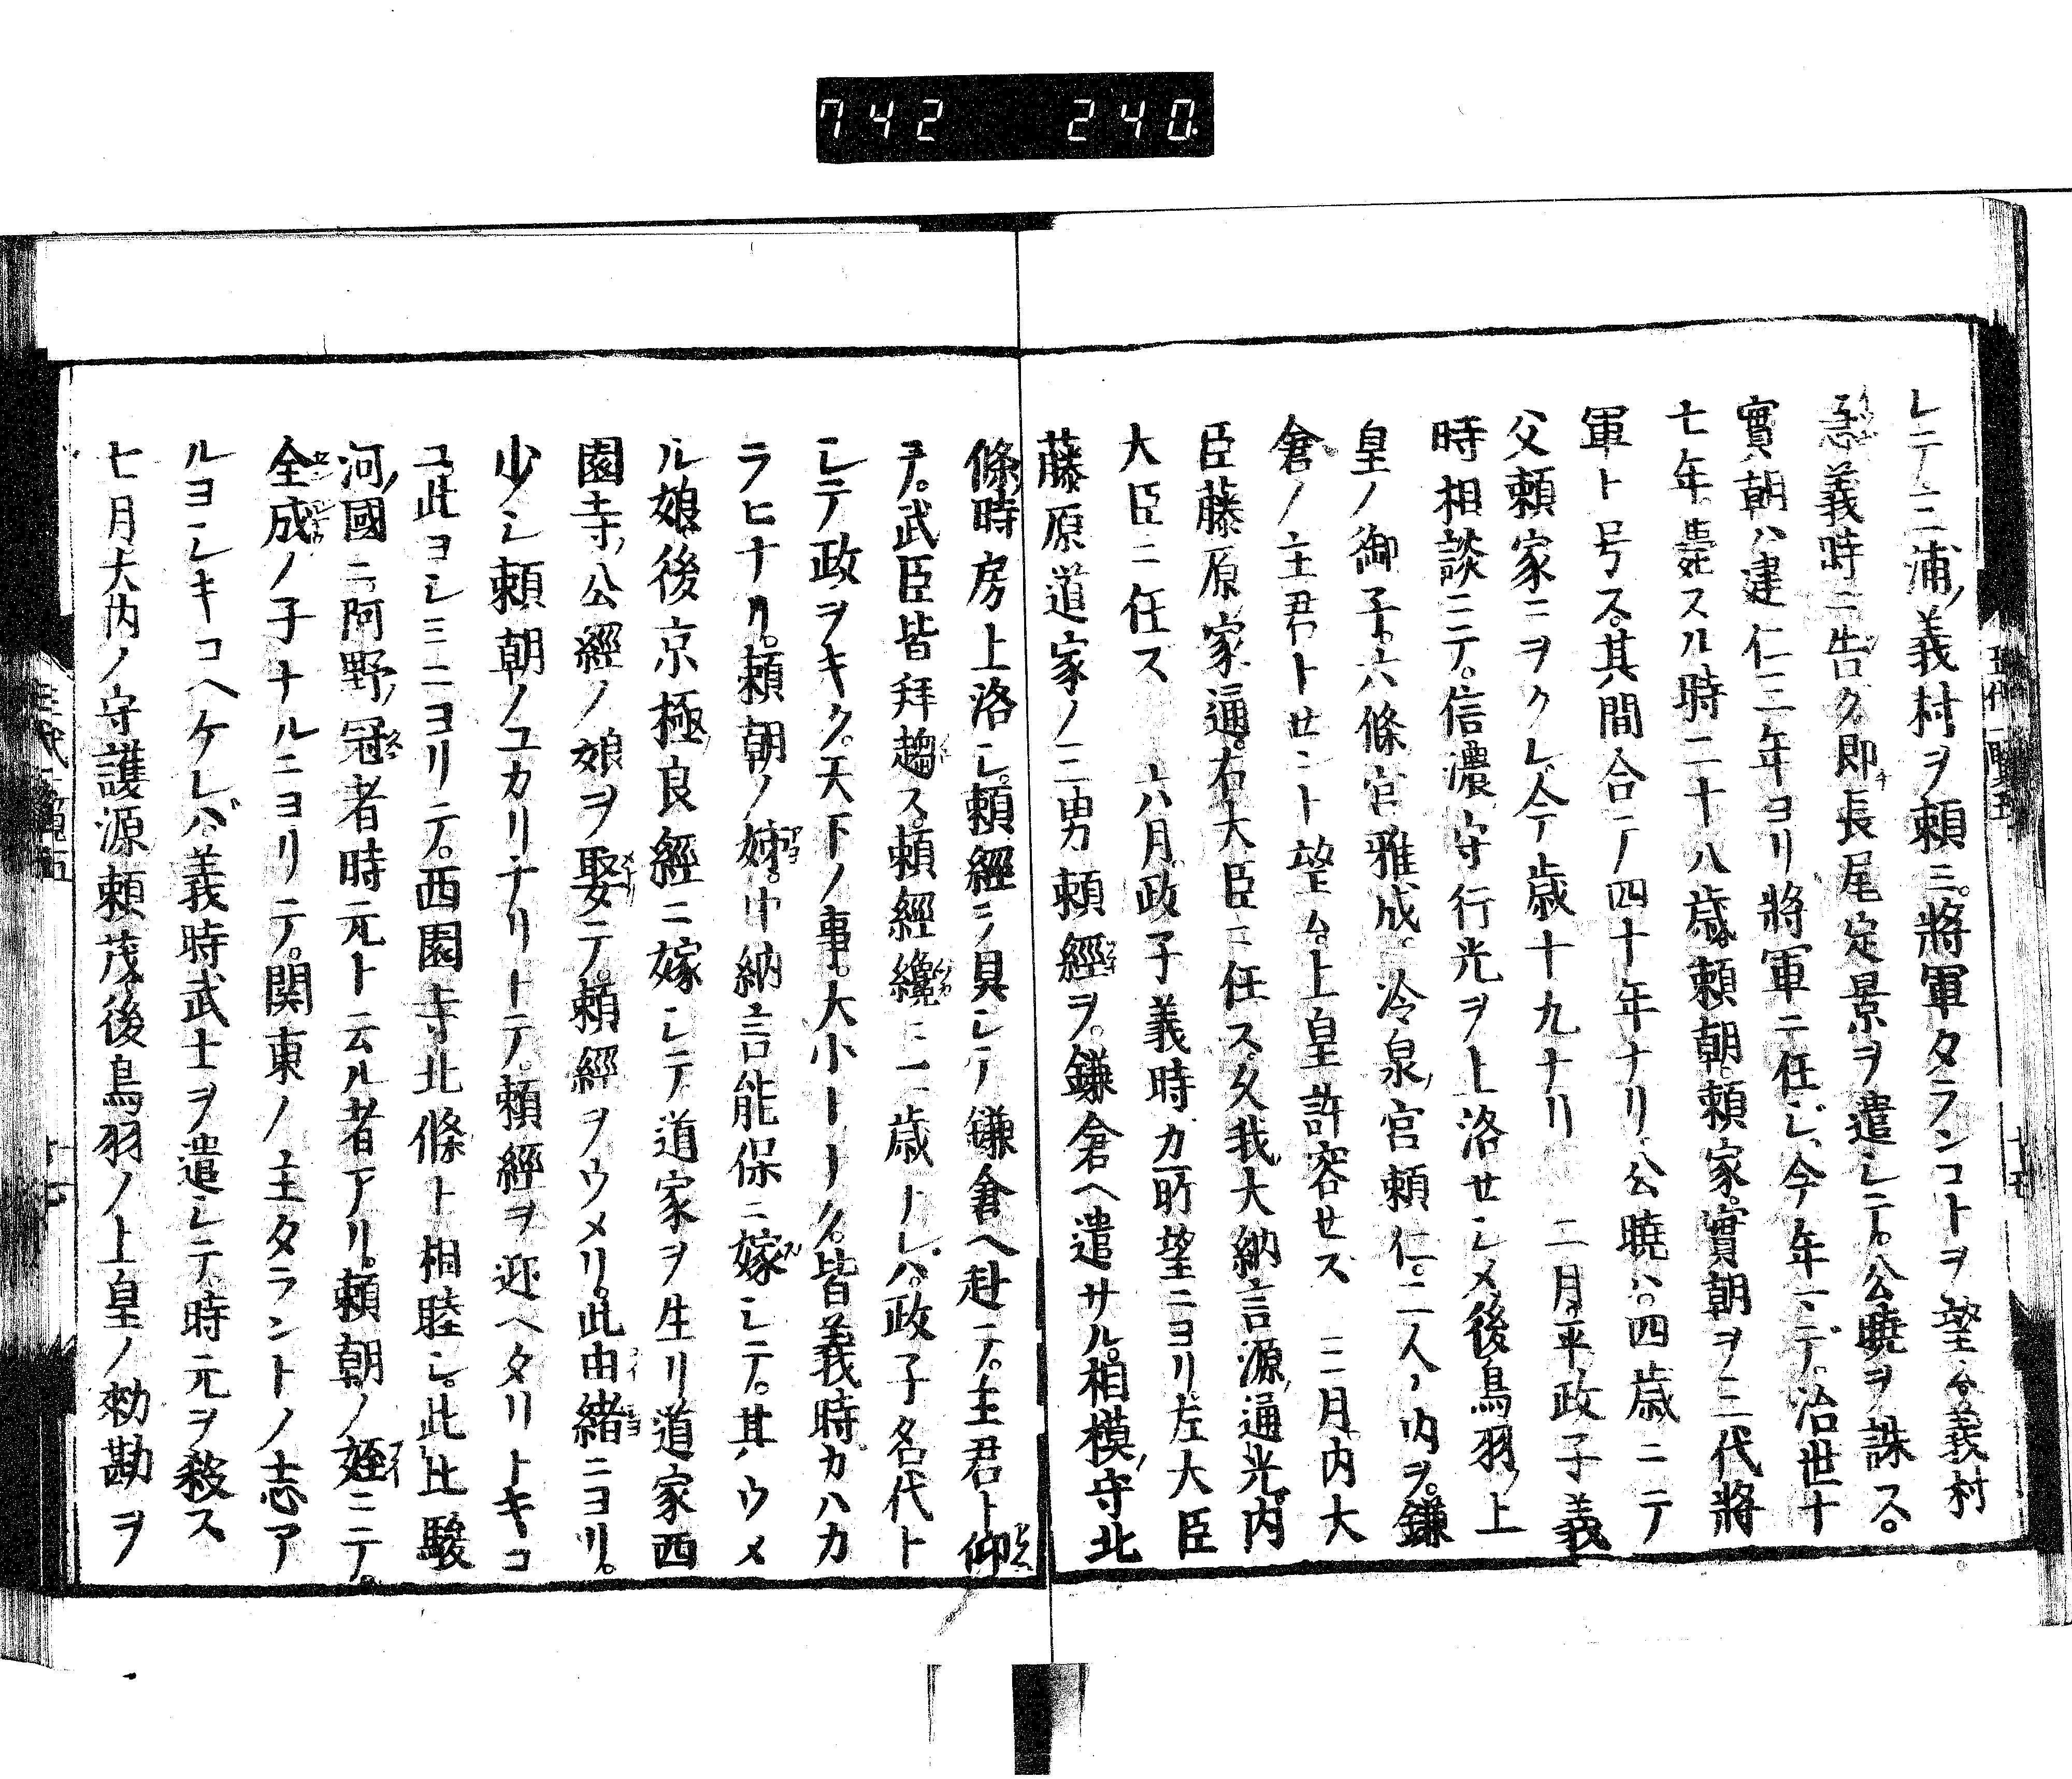 742 240.
シテ三浦ノ義村ヲ頼ミ。將軍タランコトヲ望ム。義村
急義時ニ告ク。即長尾定景ヲ遣シテ。公曉ヲ誅ス。
實朝ハ建仁三年ヨリ將軍ニ任ジ、今年マデ。治世十
七年。薨スル時二十八歳。頼朝。頼家。實朝ヲ三代將
軍ト号ス。其間合テ四十年ナリ。公曉ハ。四歳ニテ
父頼家ニヲクレ、今歳十九ナリ 二月。平政子義
時相談ニテ。信濃ノ守行光ヲ上洛セシメ、後鳥羽ノ上
皇ノ御子。六條宮雅成。冷泉ノ宮頼仁。二人ノ内ヲ。鎌
倉ノ主君トセント望ム。上皇許容セス 三月。内大
臣藤原家通。右大臣ニ任ス。久我大納言源ノ通光。内
大臣ニ任ス 六月。政子義時カ所望ニヨリ左大臣
藤原道家ノ三男頼經ヲ。鎌倉ヘ遣サル。相模ノ守北
條時房上洛シ。頼經ヲ具シテ鎌倉ヘ赴テ。主君ト仰
ヲ。武臣皆拜趨ス。頼經纔ニ二歳ナレハ。政子名代ト
シテ政ヲキク。天下ノ事。大小トナク。皆義時カハカ
ラヒナリ。頼朝ノ姊。中納言能保ニ嫁シテ。其ウメ
ル娘。後京極ノ良經ニ嫁シテ道家ヲ生リ道家西
園寺ノ公經ノ娘ヲ娶テ。頼經ヲウメリ。此由緒ニヨリ。
少シ頼朝ノユカリナリトテ。頼經ヲ迎ヘタリトキコ
ユ此ヨシミニヨリテ。西園寺北條ト相睦シ。此比駿
河ノ國ニ。阿野ノ冠者時元ト云ル者アリ。頼朝ノ姪ニテ。
全成ノ子ナルニヨリテ。関東ノ主タラントノ志ア
ルヨシキコヘケレバ。義時武士ヲ遣シテ。時元ヲ殺ス
七月大内ノ守護源頼茂後鳥羽ノ上皇ノ勅勘ヲ